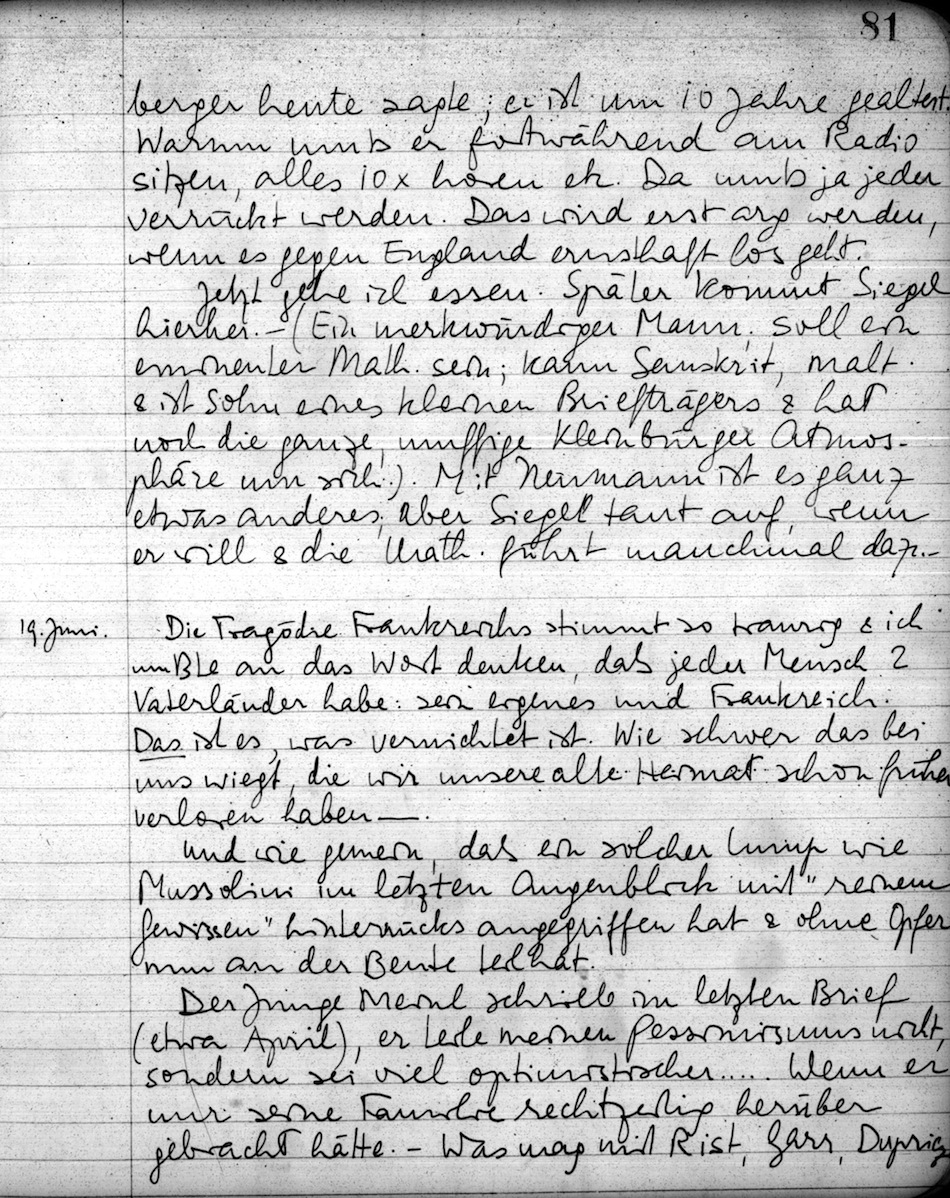 81
berger heute sagte; er ist um 10 Jahre gealtert.
Warum muß er fortwährend am Radio
sitzen, alles 10x hören etc. Da muß ja jeder
verrückt werden. Das wird erst arg werden,
wenn es gegen England ernsthaft los geht.
Jetzt gehe ich essen. Später kommt Siegel
hierher. – (Ein merkwürdiger Mann; soll ein
eminenter Math. sein; kann Sanskrit, malt.
& ist Sohn eines kleinen Briefträgers & hat
noch die ganze, muffige Kleinbürger Atmos-
phäre um sich.). Mit Neumann ist es ganz
etwas anderes; aber Siegel taut auf, wenn
er will & die Math. führt manchmal dazu. –
19. Juni. Die Tragödie Frankreichs stimmt so traurig & ich
mußte an das Wort denken, daß jeder Mensch 2
Vaterländer habe: sein eigenes und Frankreich.
Das ist es, was vernichtet ist. Wie schwer das bei
uns wiegt, die wir unsere alte Heimat schon früher
verloren haben —.
Und wie gemein, daß ein solcher Lump wie
Mussolini im letzten Augenblick mit "reinem
Gewissen" hinterrücks angegriffen hat & ohne Opfer
nun an der Beute teilhat.
Der junge Meinl schrieb im letzten Brief
(etwa April), er teile meinen Pessimismus nicht,
sondern sei viel optimistischer.... Wenn er
nur seine Familie rechtzeitig herüber
gebracht hätte. – Was mag mit Rist,